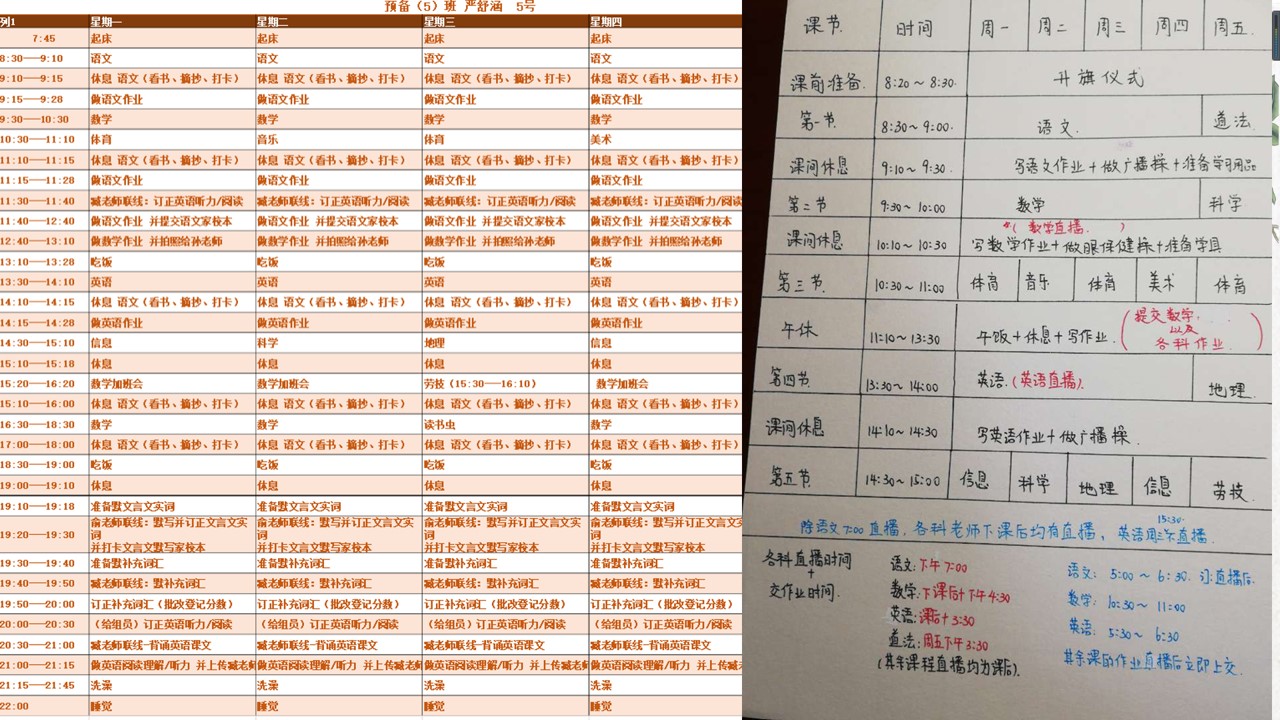 预备（5）班 严舒涵 5号
列1 星期一 星期二 星期三 星期四
7:45 起床 起床 起床 起床
8:30——9:10 语文 语文 语文 语文
9:10——9:15 休息 语文（看书、摘抄、打卡） 休息 语文（看书、摘抄、打卡） 休息 语文（看书、摘抄、打卡） 休息 语文（看书、摘抄、打卡）
9:15——9:28 做语文作业 做语文作业 做语文作业 做语文作业
9:30——10:30 数学 数学 数学 数学
10:30——11:10 体育 音乐 体育 美术
11:10——11:15 休息 语文（看书、摘抄、打卡） 休息 语文（看书、摘抄、打卡） 休息 语文（看书、摘抄、打卡） 休息 语文（看书、摘抄、打卡）
11:15——11:28 做语文作业 做语文作业 做语文作业 做语文作业
11:30——11:40 臧老师联线：订正英语听力/阅读 臧老师联线：订正英语听力/阅读 臧老师联线：订正英语听力/阅读 臧老师联线：订正英语听力/阅读
11:40——12:40 做语文作业 并提交语文家校本 做语文作业 并提交语文家校本 做语文作业 并提交语文家校本 做语文作业 并提交语文家校本
12:40——13:10 做数学作业 并拍照给孙老师 做数学作业 并拍照给孙老师 做数学作业 并拍照给孙老师 做数学作业 并拍照给孙老师
13:10——13:28 吃饭 吃饭 吃饭 吃饭
13:30——14:10 英语 英语 英语 英语
14:10——14:15 休息 语文（看书、摘抄、打卡） 休息 语文（看书、摘抄、打卡） 休息 语文（看书、摘抄、打卡） 休息 语文（看书、摘抄、打卡）
14:15——14:28 做英语作业 做英语作业 做英语作业 做英语作业
14:30——15:10 信息 科学 地理 信息
15:10——15:18 休息 休息 休息 休息
15:20——16:20 数学加班会 数学加班会 劳技（15:30——16:10） 数学加班会
15:10——16:00 休息 语文（看书、摘抄、打卡） 休息 语文（看书、摘抄、打卡） 休息 语文（看书、摘抄、打卡） 休息 语文（看书、摘抄、打卡）
16:30——18:30 数学 数学 读书虫 数学
17:00——18:00 休息 语文（看书、摘抄、打卡） 休息 语文（看书、摘抄、打卡） 休息 语文（看书、摘抄、打卡） 休息 语文（看书、摘抄、打卡）
18:30——19:00 吃饭 吃饭 吃饭 吃饭
19:00——19:10 休息 休息 休息 休息
19:10——19:18 准备默文言文实词 准备默文言文实词 准备默文言文实词 准备默文言文实词
19:20——19:30 俞老师联线：默写并订正文言文实词 俞老师联线：默写并订正文言文实词 俞老师联线：默写并订正文言文实词 俞老师联线：默写并订正文言文实词
并打卡文言文默写家校本 并打卡文言文默写家校本 并打卡文言文默写家校本 并打卡文言文默写家校本
19:30——19:40 准备默补充词汇 准备默补充词汇 准备默补充词汇 准备默补充词汇
19:40——19:50 臧老师联线：默补充词汇 臧老师联线：默补充词汇 臧老师联线：默补充词汇 臧老师联线：默补充词汇
19:50——20:00 订正补充词汇（批改登记分数） 订正补充词汇（批改登记分数） 订正补充词汇（批改登记分数） 订正补充词汇（批改登记分数）
20:00——20:30 （给组员）订正英语听力/阅读 （给组员）订正英语听力/阅读 （给组员）订正英语听力/阅读 （给组员）订正英语听力/阅读
20:30——21:00 臧老师联线-背诵英语课文 臧老师联线-背诵英语课文 臧老师联线-背诵英语课文 臧老师联线-背诵英语课文
21:00——21:15 做英语阅读理解/听力 并上传臧老师 做英语阅读理解/听力 并上传臧老师 做英语阅读理解/听力 并上传臧老师 做英语阅读理解/听力 并上传臧
21:15——21:45 洗澡 洗澡 洗澡 洗澡
22:00 睡觉 睡觉 睡觉 睡觉
课节 时间 周一 周二 周三 周四 周五
课前准备 8:20～8:30 升旗仪式
第一节 8:30～9:00 语文 道法
课间休息 9:10～9:30 写语文作业+做广播操+准备学习用品
第二节 9:30～10:00 数学 科学
（数学直播）
课间休息 10:10～10:30 写数学作业+做眼保健操+准备学具
第三节 10:30～11:00 体育 音乐 体育 美术 体育
午休 11:10～13:30 午饭+休息+写作业（提交数学以及各科作业）
第四节 13:30～14:00 英语（英语直播） 地理
课间休息 14:10～14:30 写英语作业+做广播操
第五节 14:30～15:00 信息 科学 地理 信息 劳技
15:30
除语文7:00直播，各科老师下课后均有直播，英语周三不直播
各科直播时间+交作业时间
语文：下午7:00
数学：下课后+下午4:30
英语：课后+3:30
道法：周五下午3:30
（其余课程直播均为课后）
语文：5:00～6:30 直播后
数学：10:30～11:00
英语：5:30～6:30
其余课的作业直播后立即上交